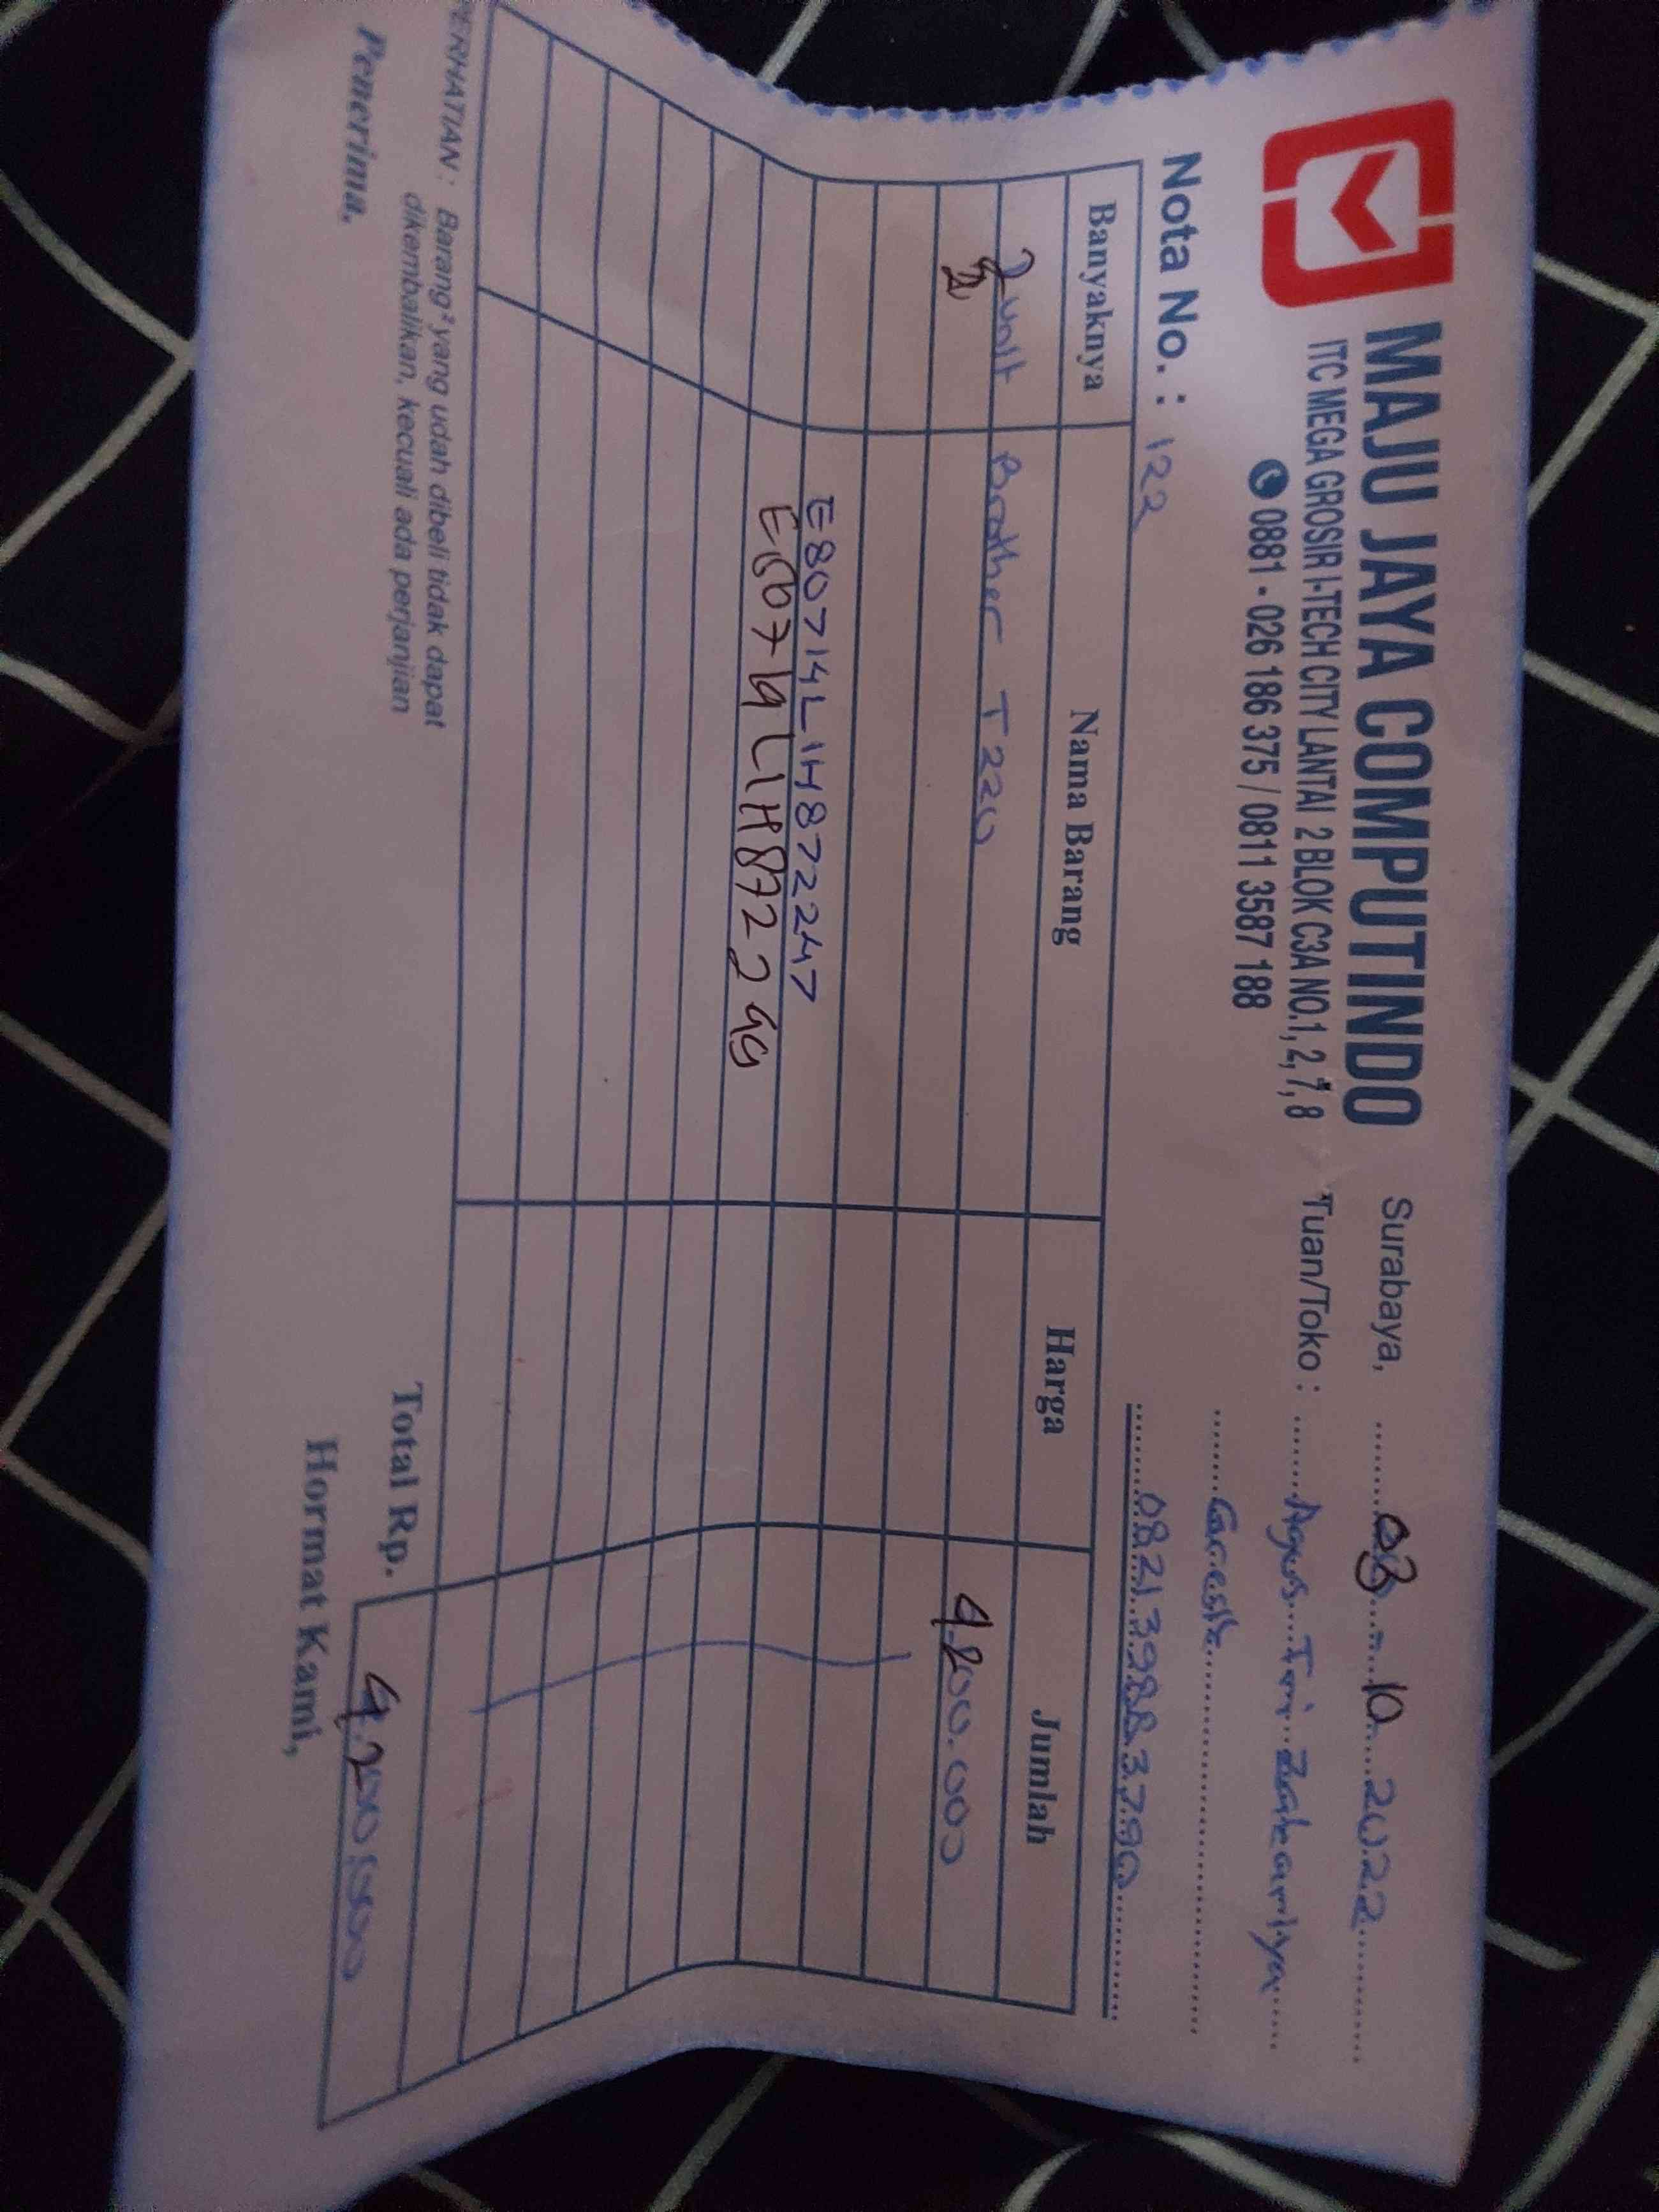 MAJU JAYA COMPUTINDO
ITC MEGA GROSIR I-TECH CITY LANTAI 2 BLOK C3A NO.1, 2, 7, 8
0881 - 026 186 375 / 0811 3587 188
Surabaya, 03 - 10 2022
Tuan/Toko : Agus Tri Zakeariya
082139883790
Nota No. : 122
Banyaknya Nama Barang Harga Jumlah
2 unit Brother T220 4.200.000
2
E80714L1H872247
E80714L1H872249
Total Rp. 4.200.000
PERHATIAN : Barang² yang udah dibeli tidak dapat
dikembalikan, kecuali ada perjanjian
Penerima, Hormat Kami,